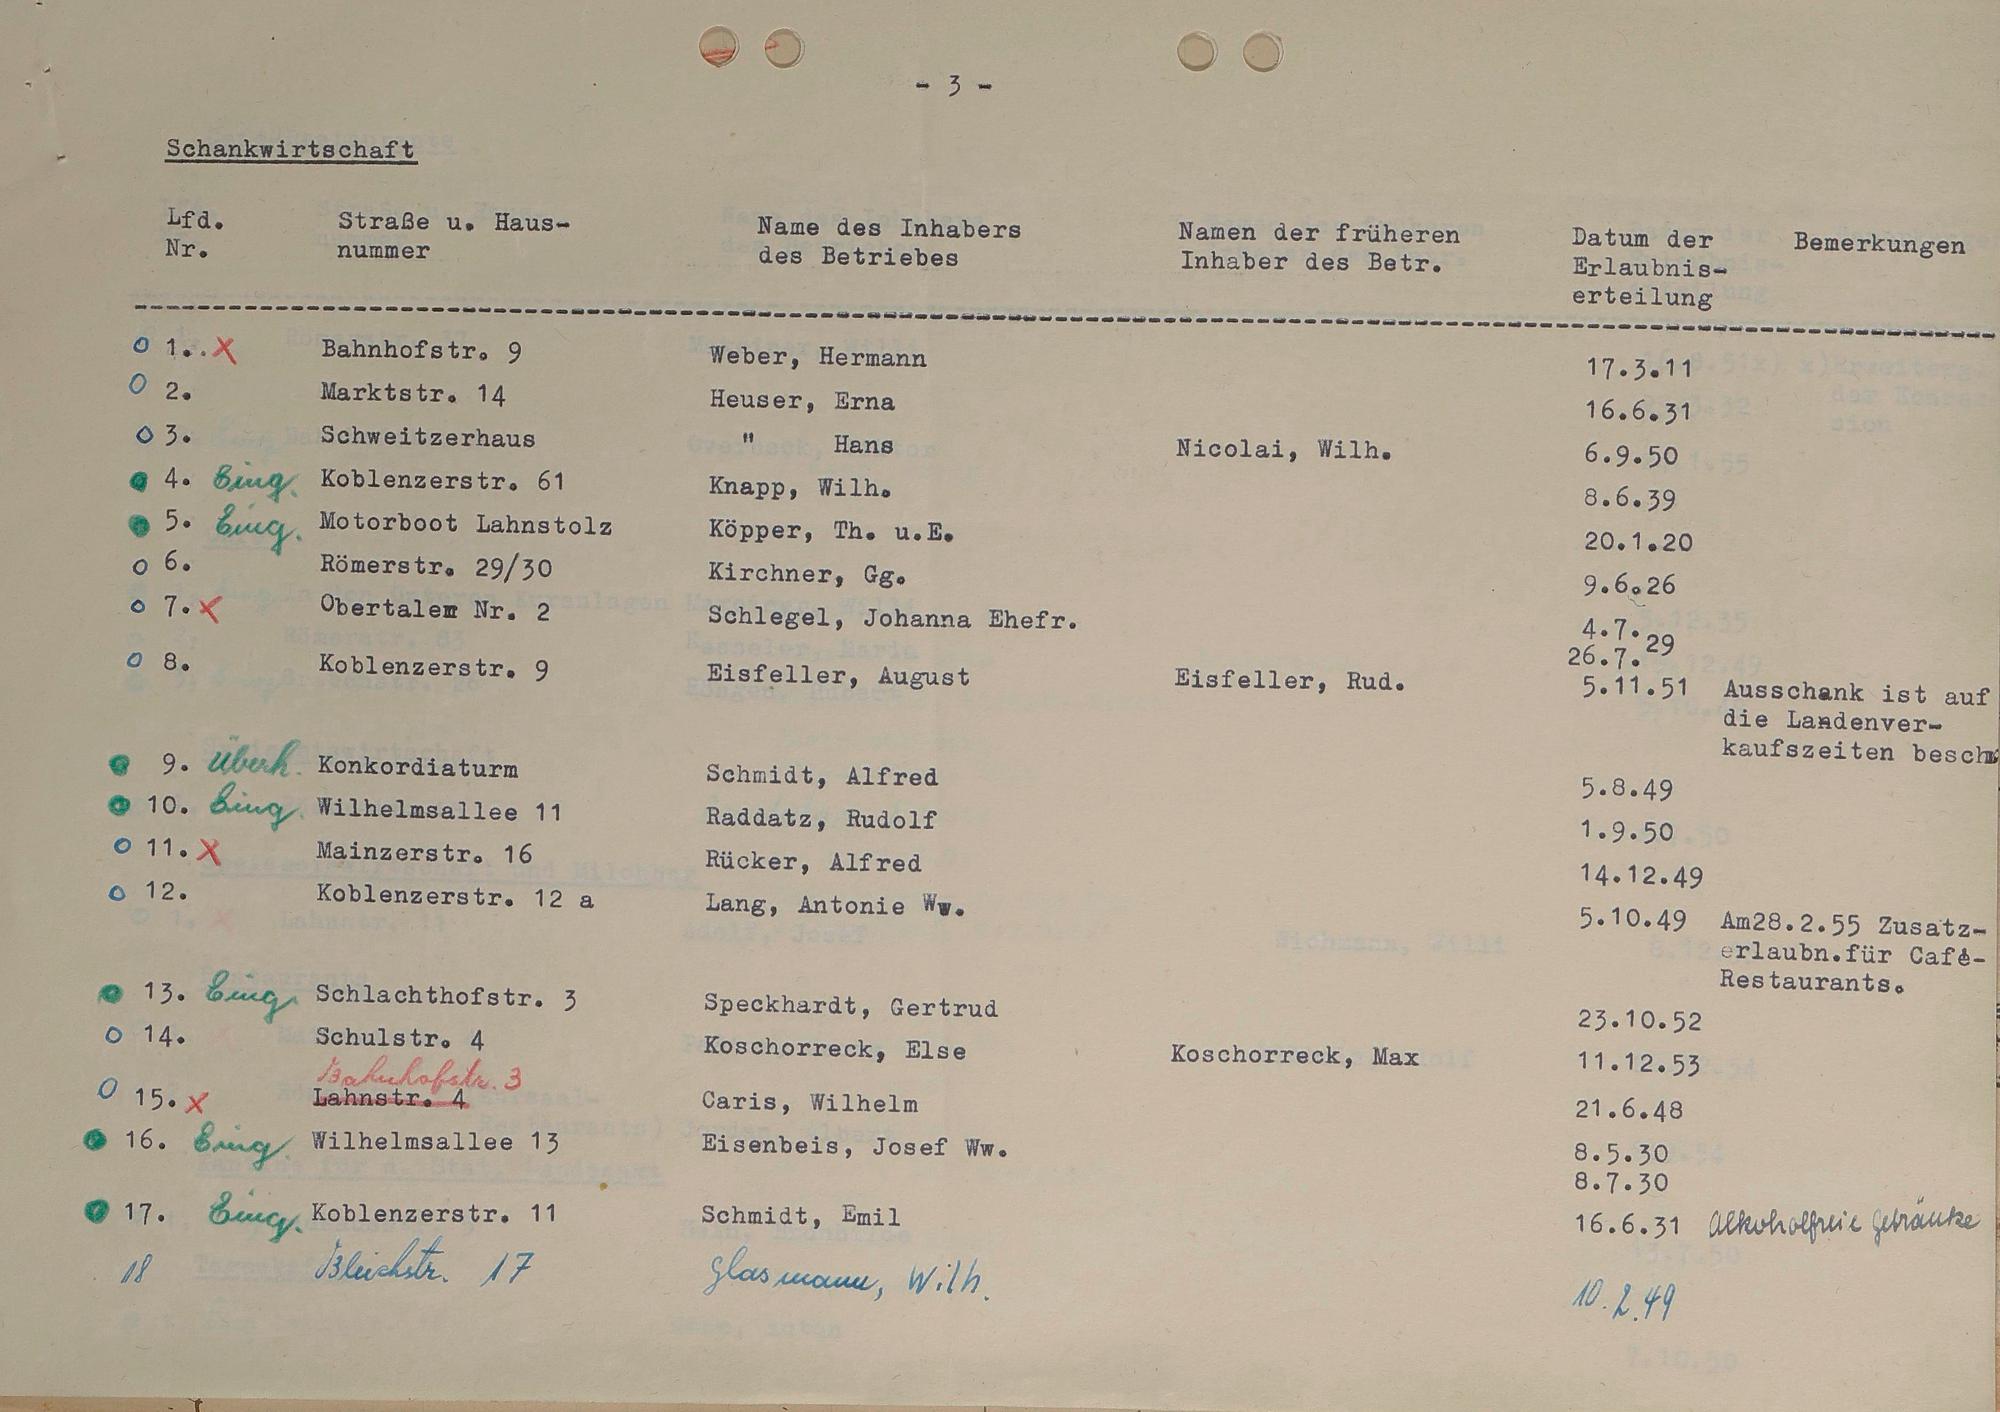 - 3 -
Schankwirtschaft
Lfd. Straße u. Haus- Name des Inhabers Namen der früheren Datum der Bemerkungen
Nr. nummer des Betriebes Inhaber des Betr. Erlaubnis-
erteilung
1. x Bahnhofstr. 9 Weber, Hermann 17.3.11
2. Marktstr. 14 Heuser, Erna 16.6.31
3. Schweitzerhaus " Hans Nicolai, Wilh. 6.9.50
4. Eing. Koblenzerstr. 61 Knapp, Wilh. 8.6.39
5. Eing. Motorboot Lahnstolz Köpper, Th. u.E. 20.1.20
6. Römerstr. 29/30 Kirchner, Gg. 9.6.26
7. x Obertalem Nr. 2 Schlegel, Johanna Ehefr. 4.7. 29
26.7.
8. Koblenzerstr. 9 Eisfeller, August Eisfeller, Rud. 5.11.51 Ausschank ist auf
die Landenver-
kaufszeiten besch
9. Überh. Konkordiaturm Schmidt, Alfred 5.8.49
10. Eing. Wilhelmsallee 11 Raddatz, Rudolf 1.9.50
11. x Mainzerstr. 16 Rücker, Alfred 14.12.49
12. Koblenzerstr. 12 a Lang, Antonie Ww. 5.10.49 Am28.2.55 Zusatz-
erlaubn.für Café-
Restaurants.
13. Eing. Schlachthofstr. 3 Speckhardt, Gertrud 23.10.52
14. Schulstr. 4 Koschorreck, Else Koschorreck, Max 11.12.53
Bahnhofstr. 3
15. x Lahnstr. 4 Caris, Wilhelm 21.6.48
16. Eing. Wilhelmsallee 13 Eisenbeis, Josef Ww. 8.5.30
8.7.30
17. Eing. Koblenzerstr. 11 Schmidt, Emil 16.6.31 Alkoholfreie Getränke
18 Bleichstr. 17 Glasmann, Wilh. 10.2.49